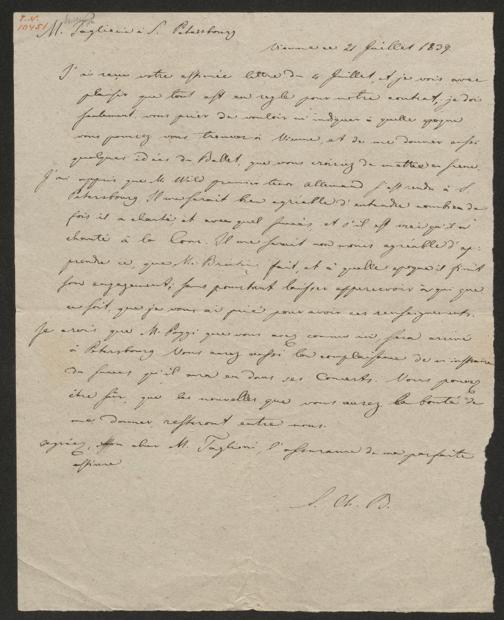 T.N. 10451
M. Taglioni à S. Petersbourg
Vienne ce 21 Juillet 1839
J'ai reçu votre estimée lettre du 4 Juillet, et je vois avec
plaisir que tout est en regle pour notre contrat, je dois
seulement vous prier de vouloir m'indiquer à quelle epoque
vous pourrez vous trouver à Vienne, et de me donner aussi
quelques idées du Ballet, que vous croirez de mettre en scene.
J'ai appris que M. Wild premier tenor allemand s'est rendu à S.
Petersbourg. Il me serait bien agréable d'entendre combien de
fois il a chanté et avec quel succès, et s'il est vrai qu'il a
chanté à la Cour. Il me serait non moins agréable d'ap-
prendre ce, que M. fait, et à quelle epoque il finit
son engagement, sans pourtant laisser appercevoir à qui que
ce soit, que je vous ai prié pour avoir ces renseignements.
Je crois que M. Poggi que vous avez connu ici sera arrivé
à Petersbourg. Vous aurez aussi la complaisance de m'instruire
du succès qu'il aura eu dans ses Concerts. Vous pouvez
être sûr, que les nouvelles que vous aurez la bonté de
me donner resteront entre nous.
Agréez, mon cher M. Taglioni, l'assurance de ma parfaite
estime
S. Ch. B.